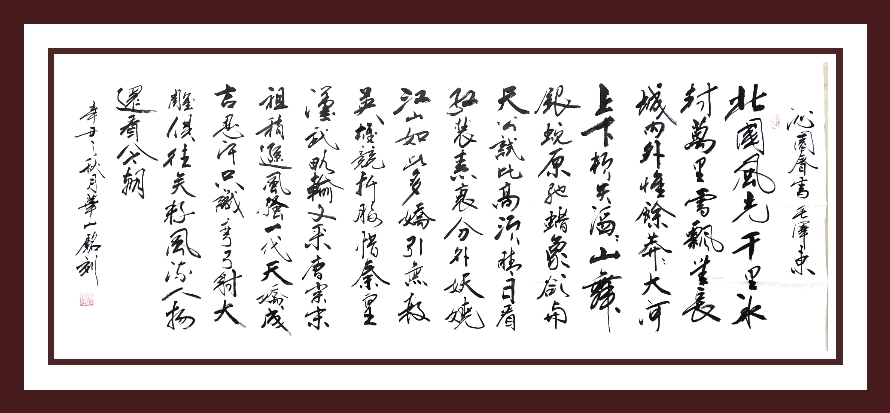 沁園春雪 毛澤東
北國風光千里冰
封萬里雪飄望長
城内外惟餘莽々大河
上下頓失滔々山舞
銀蛇原馳蠟象欲與
天公試比高須晴日看
紅裝素裹分外妖嬈
江山如此多嬌引無數
英雄競折腰惜秦皇
漢武略輸文采唐宗宋
祖稍遜風騷一代天驕成
吉思汗只識彎弓射大
雕俱往矣數風流人物
還看今朝
辛丑之秋月華山銘利